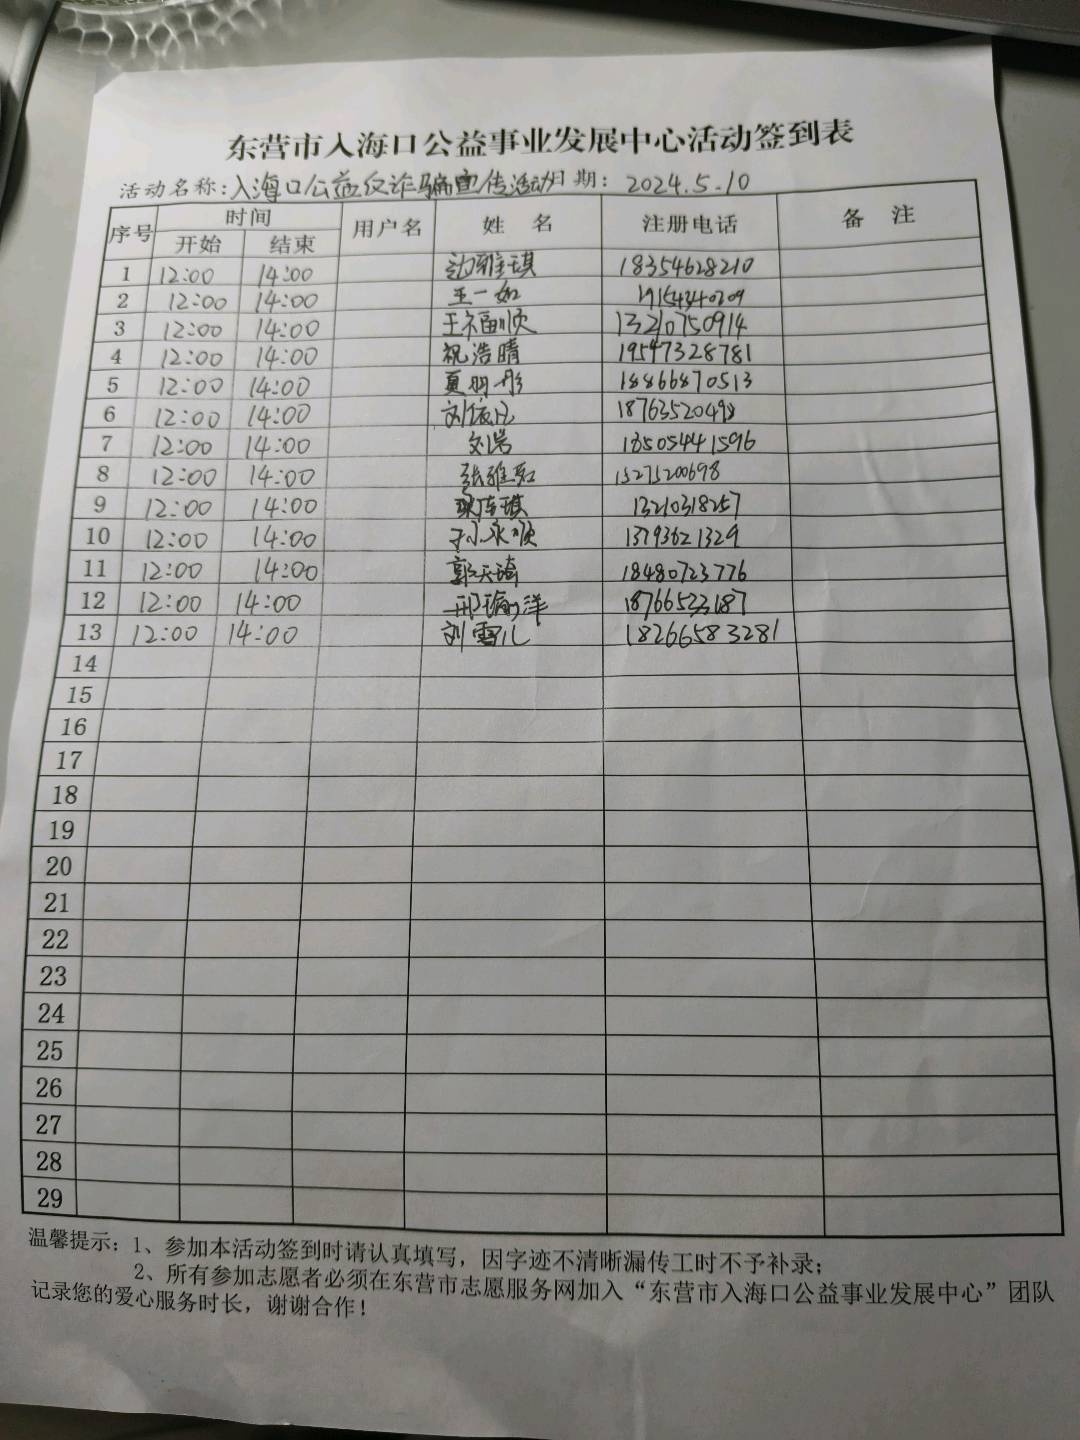 东营市入海口公益事业发展中心活动签到表
活动名称:入海口公益反诈骗宣传活动日期: 2024.5.10
序号 时间 用户名 姓 名 注册电话 备 注
开始 结束
1 12:00 14:00 边雅琪 18354628210
2 12:00 14:00 王一如
3 12:00 14:00 王福顺 13210750914
4 12:00 14:00 祝浩晴 19547328781
5 12:00 14:00 夏明彤 18866870513
6 12:00 14:00 1876352049
7 12:00 14:00 18505441596
8 12:00 14:00 张雅茹 15275200698
9 12:00 14:00 13210318257
10 12:00 14:00 于小永顺 13793621329
11 12:00 14:00 郭天琦 18480723776
12 12:00 14:00 18766523187
13 12:00 14:00 刘雪儿 18266583281
14
15
16
17
18
19
20
21
22
23
24
25
26
27
28
29
温馨提示: 1、参加本活动签到时请认真填写,因字迹不清晰漏传工时不予补录;
2、所有参加志愿者必须在东营市志愿服务网加入“东营市入海口公益事业发展中心”团队
记录您的爱心服务时长,谢谢合作!